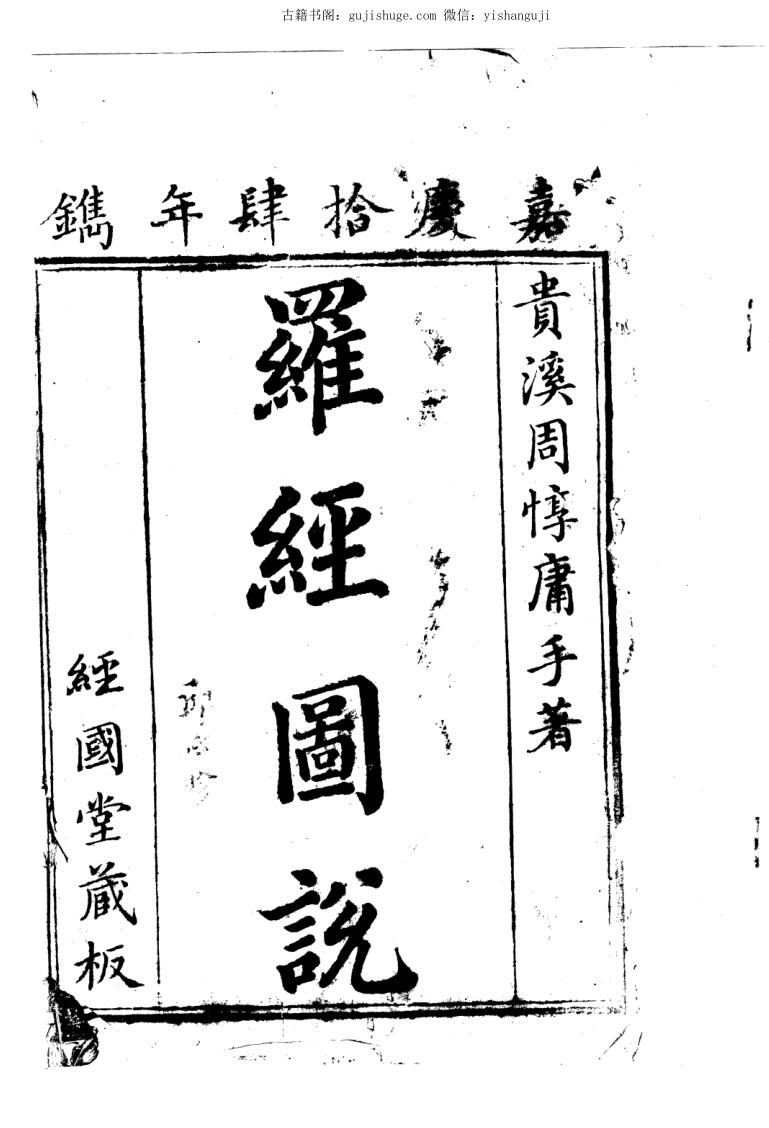 古籍书阁：gujishuge.com 微信：yishanguji
嘉慶拾肆年鐫
貴溪周惇庸手著
羅經圖說
經國堂藏板